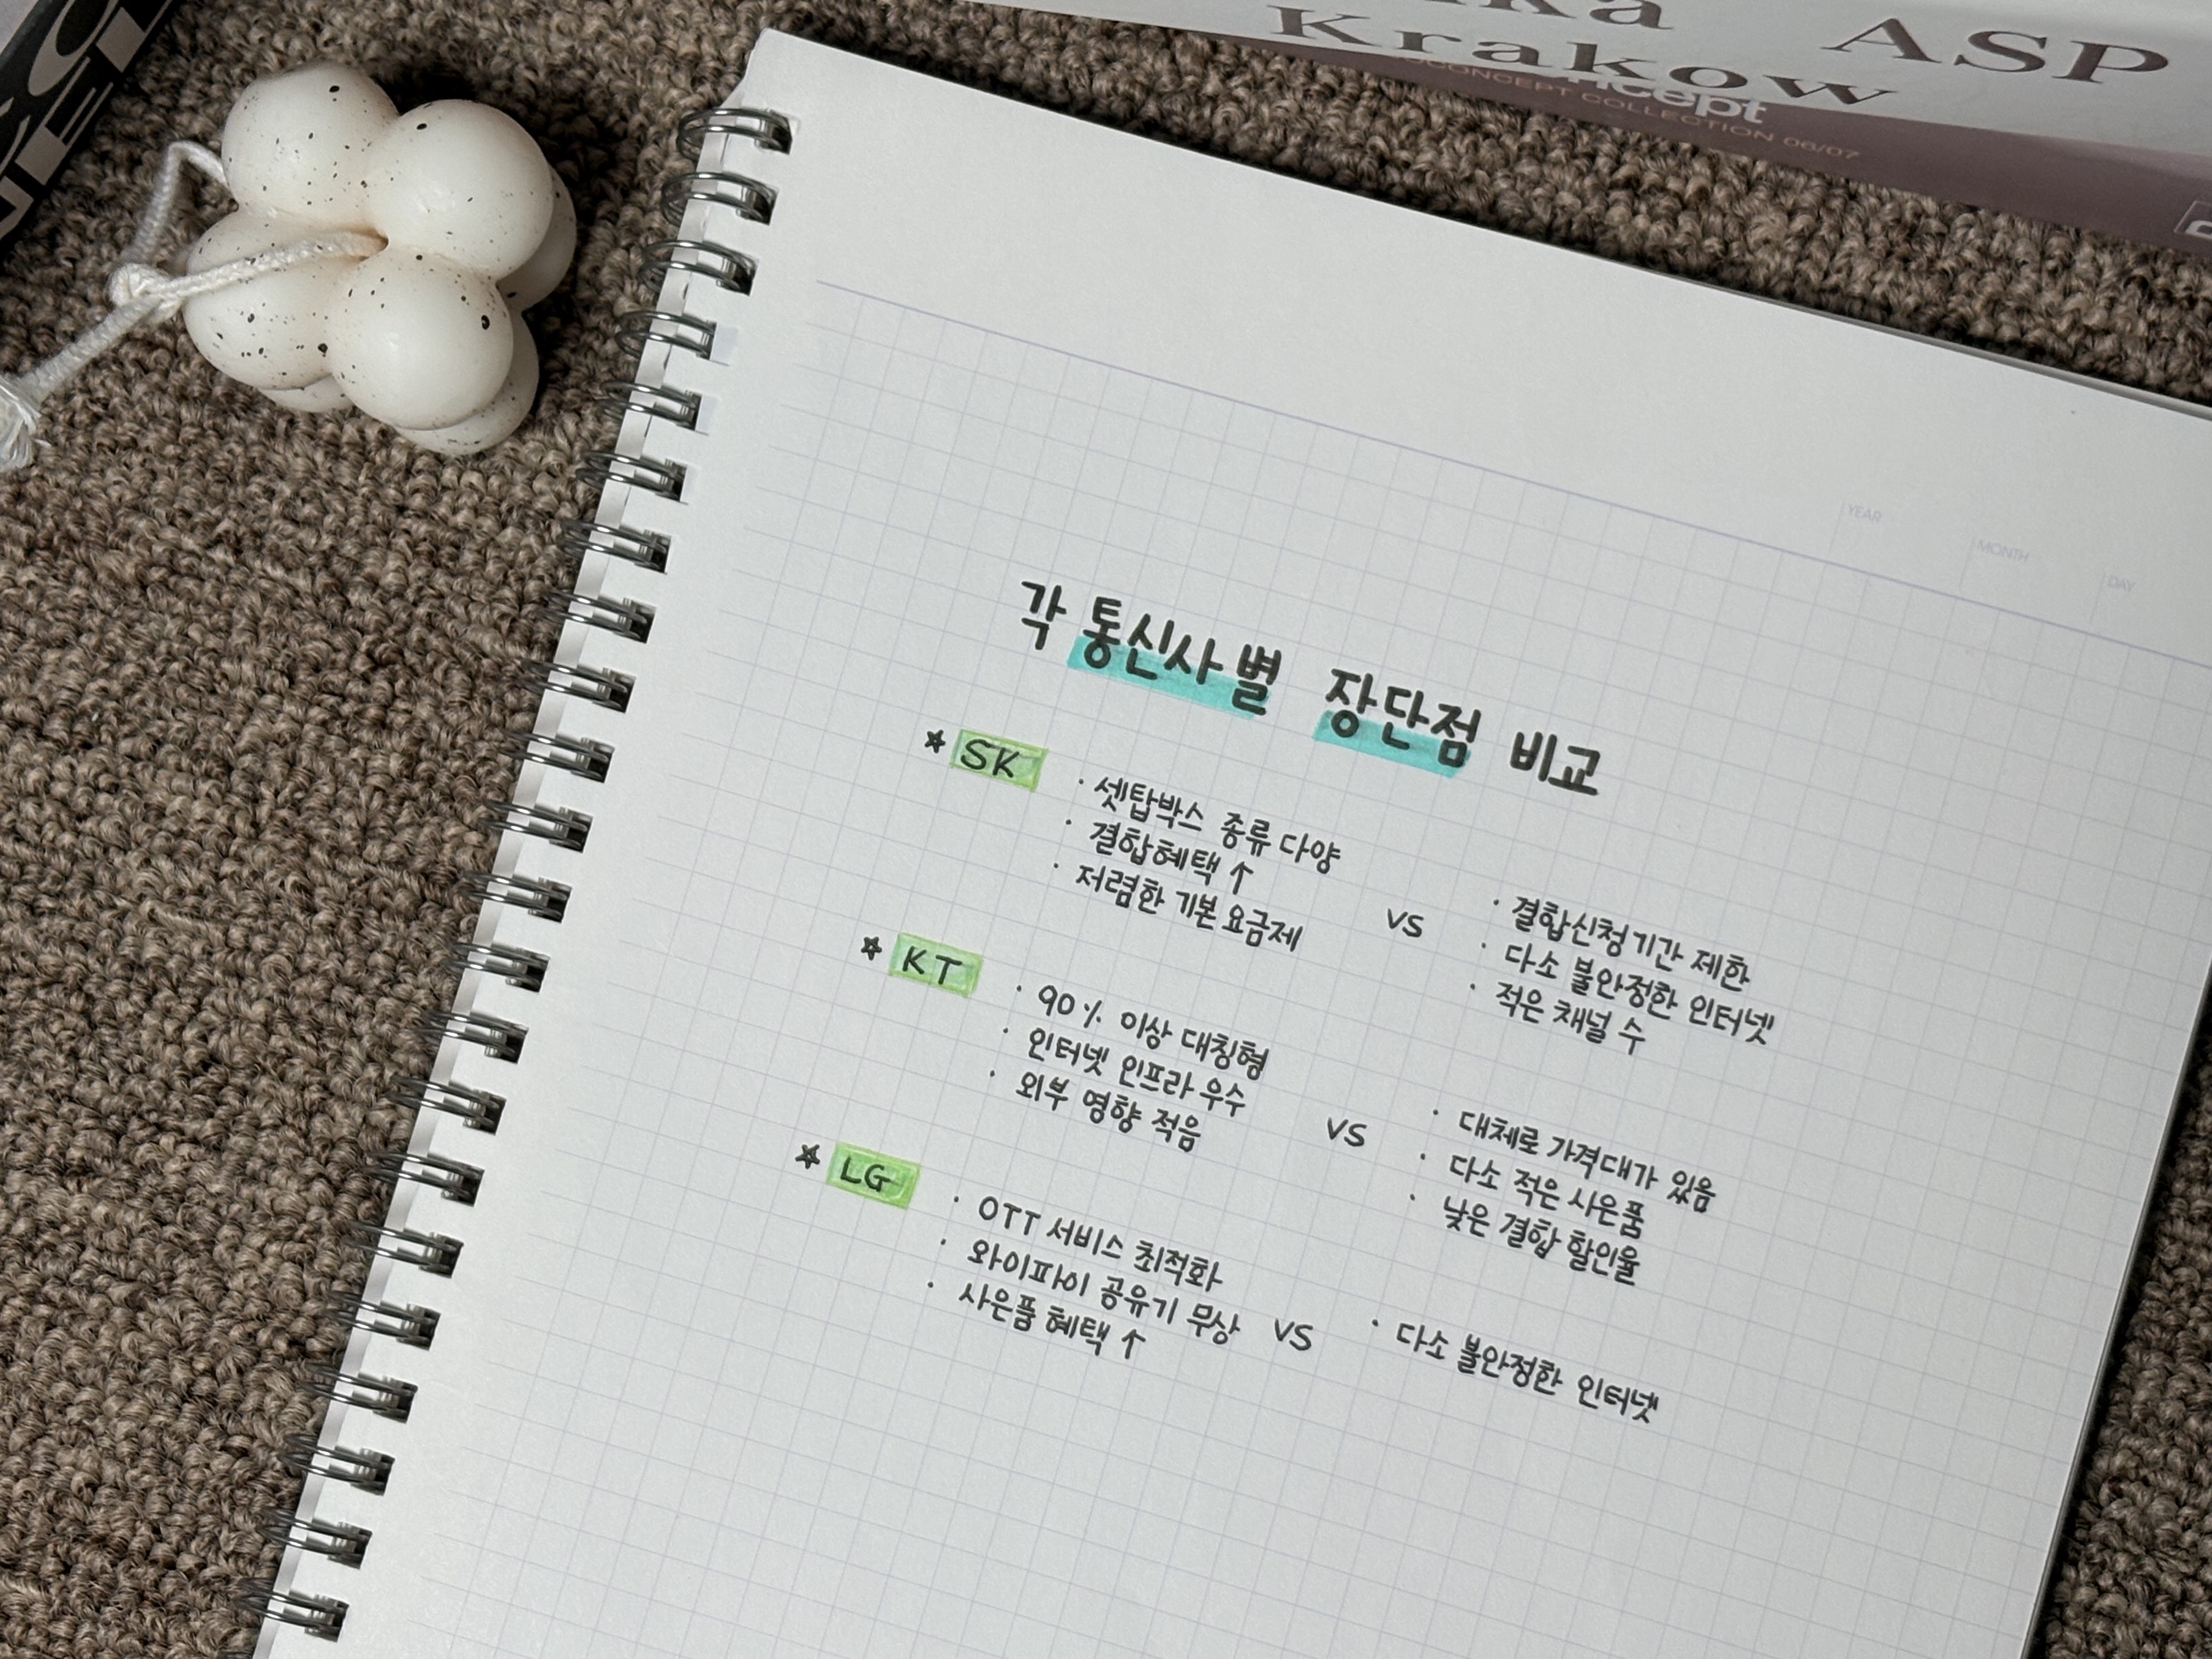 Krakow
ASP
CONCEPT COLLECTION 06/07
YEAR
MONTH
DAY
각 통신사별 장단점 비교
* SK
· 셋탑박스 종류 다양
· 결합혜택 ↑
· 저렴한 기본 요금제
vs
· 결합신청기간 제한
· 다소 불안정한 인터넷
· 적은 채널 수
* KT
· 90% 이상 대칭형
· 인터넷 인프라 우수
· 외부 영향 적음
vs
· 대체로 가격대가 있음
· 다소 적은 사은품
· 낮은 결합 할인율
* LG
· OTT 서비스 최적화
· 와이파이 공유기 무상
· 사은품 혜택 ↑
vs
· 다소 불안정한 인터넷